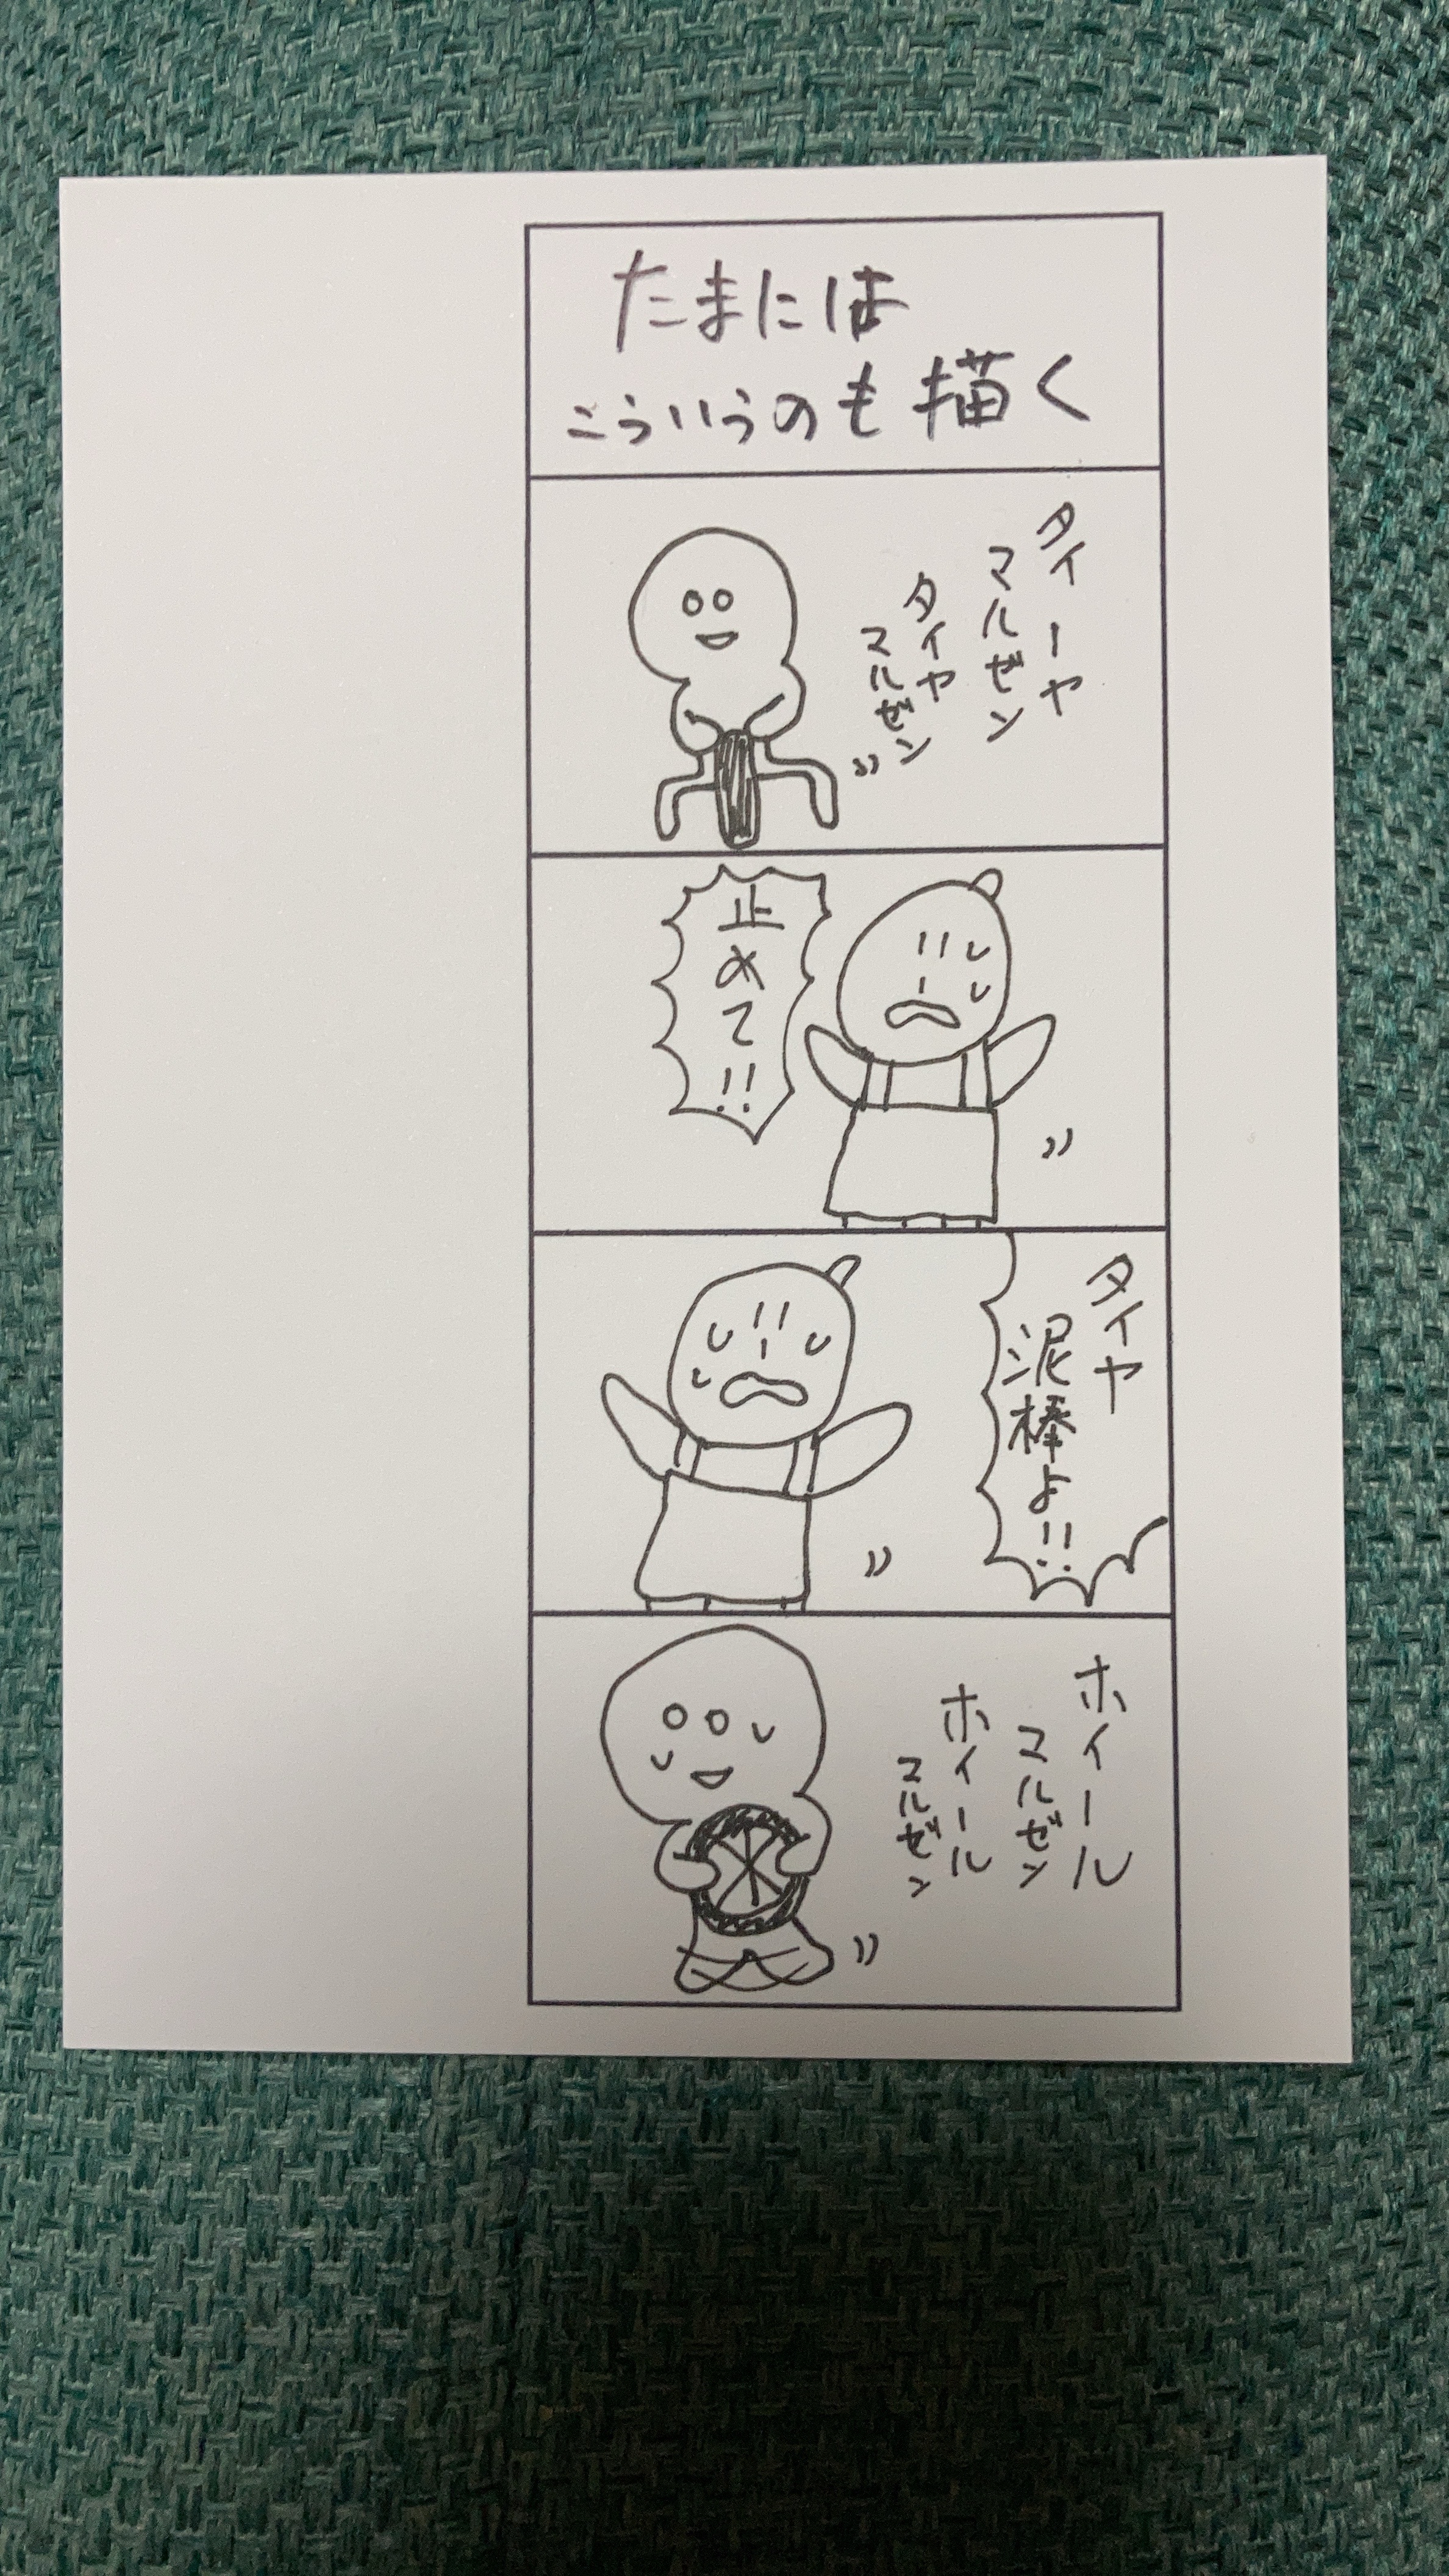 たまには
こういうのも描く
タイーヤ
マルゼン
タイヤ
マルゼン
止めて!!
タイヤ
泥棒よ!!
ホイール
マルゼン
ホイール
マルゼン